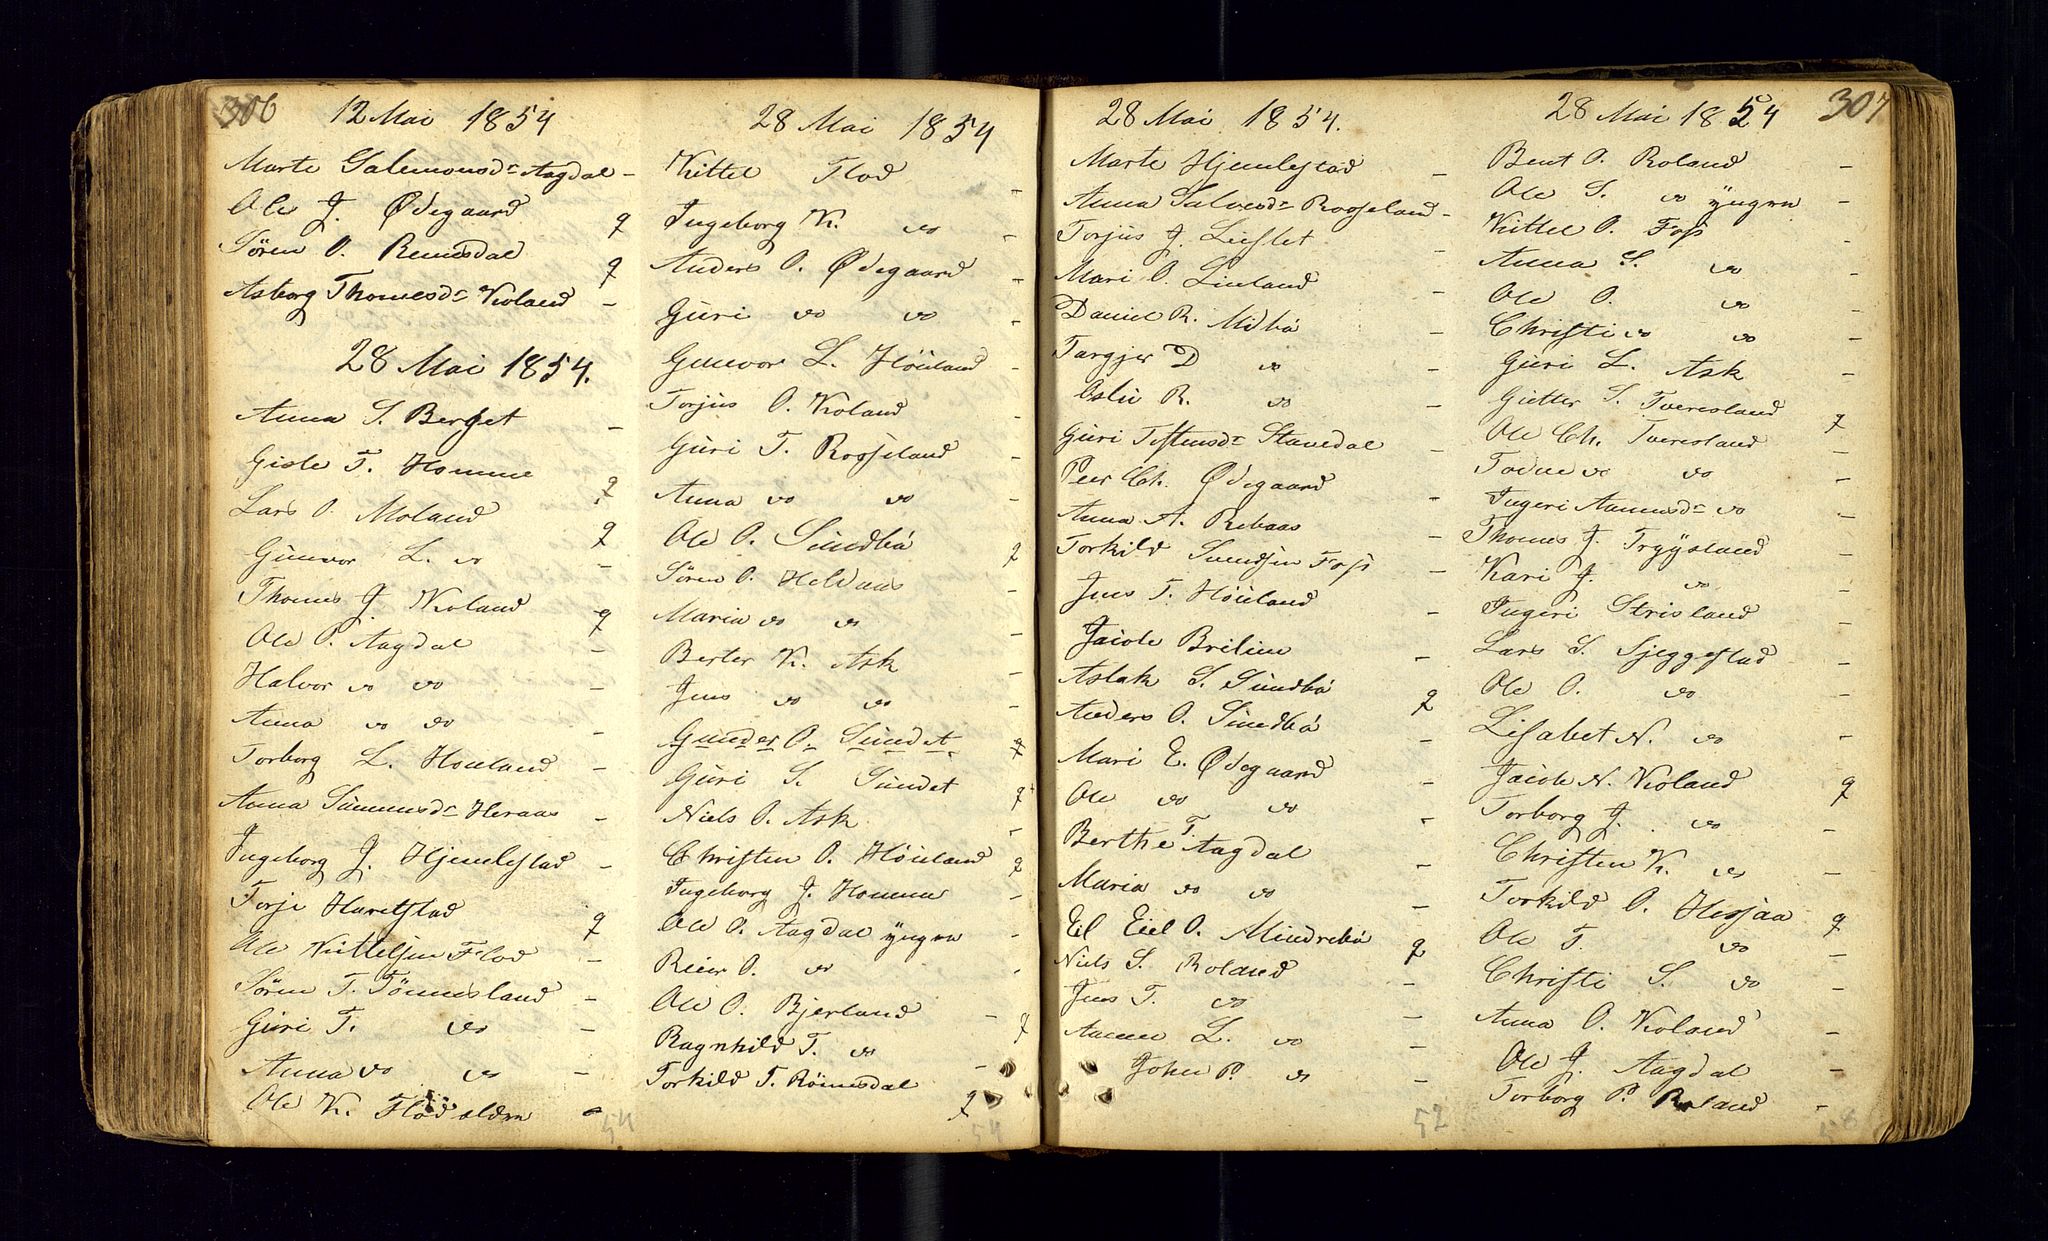 306
12 Mai 1854
Marte Salemonsdr Aagdal -
Ole J. Ødegaard q
Sören O. Remesdal q
Asborg Thomesdr Koland -
28 Mai 1854.
Anna S. Berget -
Gisle T. Homme q
Lars O. Moland q
Gunvor L. do -
Thomes J. Koland q
Ole P. Aagdal -
Halvor do do -
Anna do do -
Torborg L. Houland -
Anna Simmesdr Heraas -
Ingeborg J. Hjemlestad -
Torje Haretstad q
Ole Kittelsen Flod -
Sören T. Tönnesland -
Guri T. do -
Anna do do -
Ole K. Flod ældre -
54
28 Mai 1854
Kittel Flod -
Ingeborg K. do -
Anders O. Ødegaard -
Guri do do -
Gunvor L. Höiland -
Torjus O. Koland -
Guri T. Roosseland -
Anna do do -
Ole O. Sundbö q
Sören O. Heldaas -
Maria do do -
Berter K. Ask -
Jens do do -
Gunder O. Sundet q
Guri S. Sundet q
Niels O. Ask -
Christen O. Höiland q
Ingeborg J. Homme -
Ole O. Aagdal yngre -
Reier O. do -
Ole O. Bjerland q
Ragnhild T. do -
Torkild T. Römesdal q
54
28 Mai 1854.
Marte Hjemlestad -
Anna Salvesdr Roosseland -
Torjus J. Lieslet -
Mari O. Linland -
Daniel R. Midbö -
Targjer D do -
Oslu R. do -
Guri Testensdr Stavedal -
Peer Ch. Ødegaard -
Anna A. Rebaas -
Torkild Svendsen Foss -
Jens T. Höiland -
Jacob Brelien -
Aslak S. Sundbö q
Anders O. Sundbö -
Mari E. Ødegaard -
Ole do do -
Berthe T. Aagdal -
Maria do do -
El Eiel O. Mindrebö q
Niels S. Roland -
Jens T. do -
Aanen L. do -
Johen P. do -
52
28 Mai 1854
307
Bent O. Roland -
Ole S. do yngre -
Kittel O. Foss -
Anna S. do -
Ole O. do -
Christi do do -
Guri L. Ask -
Gietter S. Tveresland q
Ole Ch. Tveresland -
Tadne do do -
Ingeri Aanensdr do -
Thomes J. Tryysland -
Kari J. do -
Ingeri Strisland -
Lars S. Sjeggestad -
Ole O. do -
Lisabet N. do -
Jacob N. Koland q
Torborg J. do -
Christen K. do -
Torkild O. Hesjaa q
Ole T. do -
Christi S. do -
Anna O. Koland -
Ole J. Aagdal -
Torborg P. Roland -